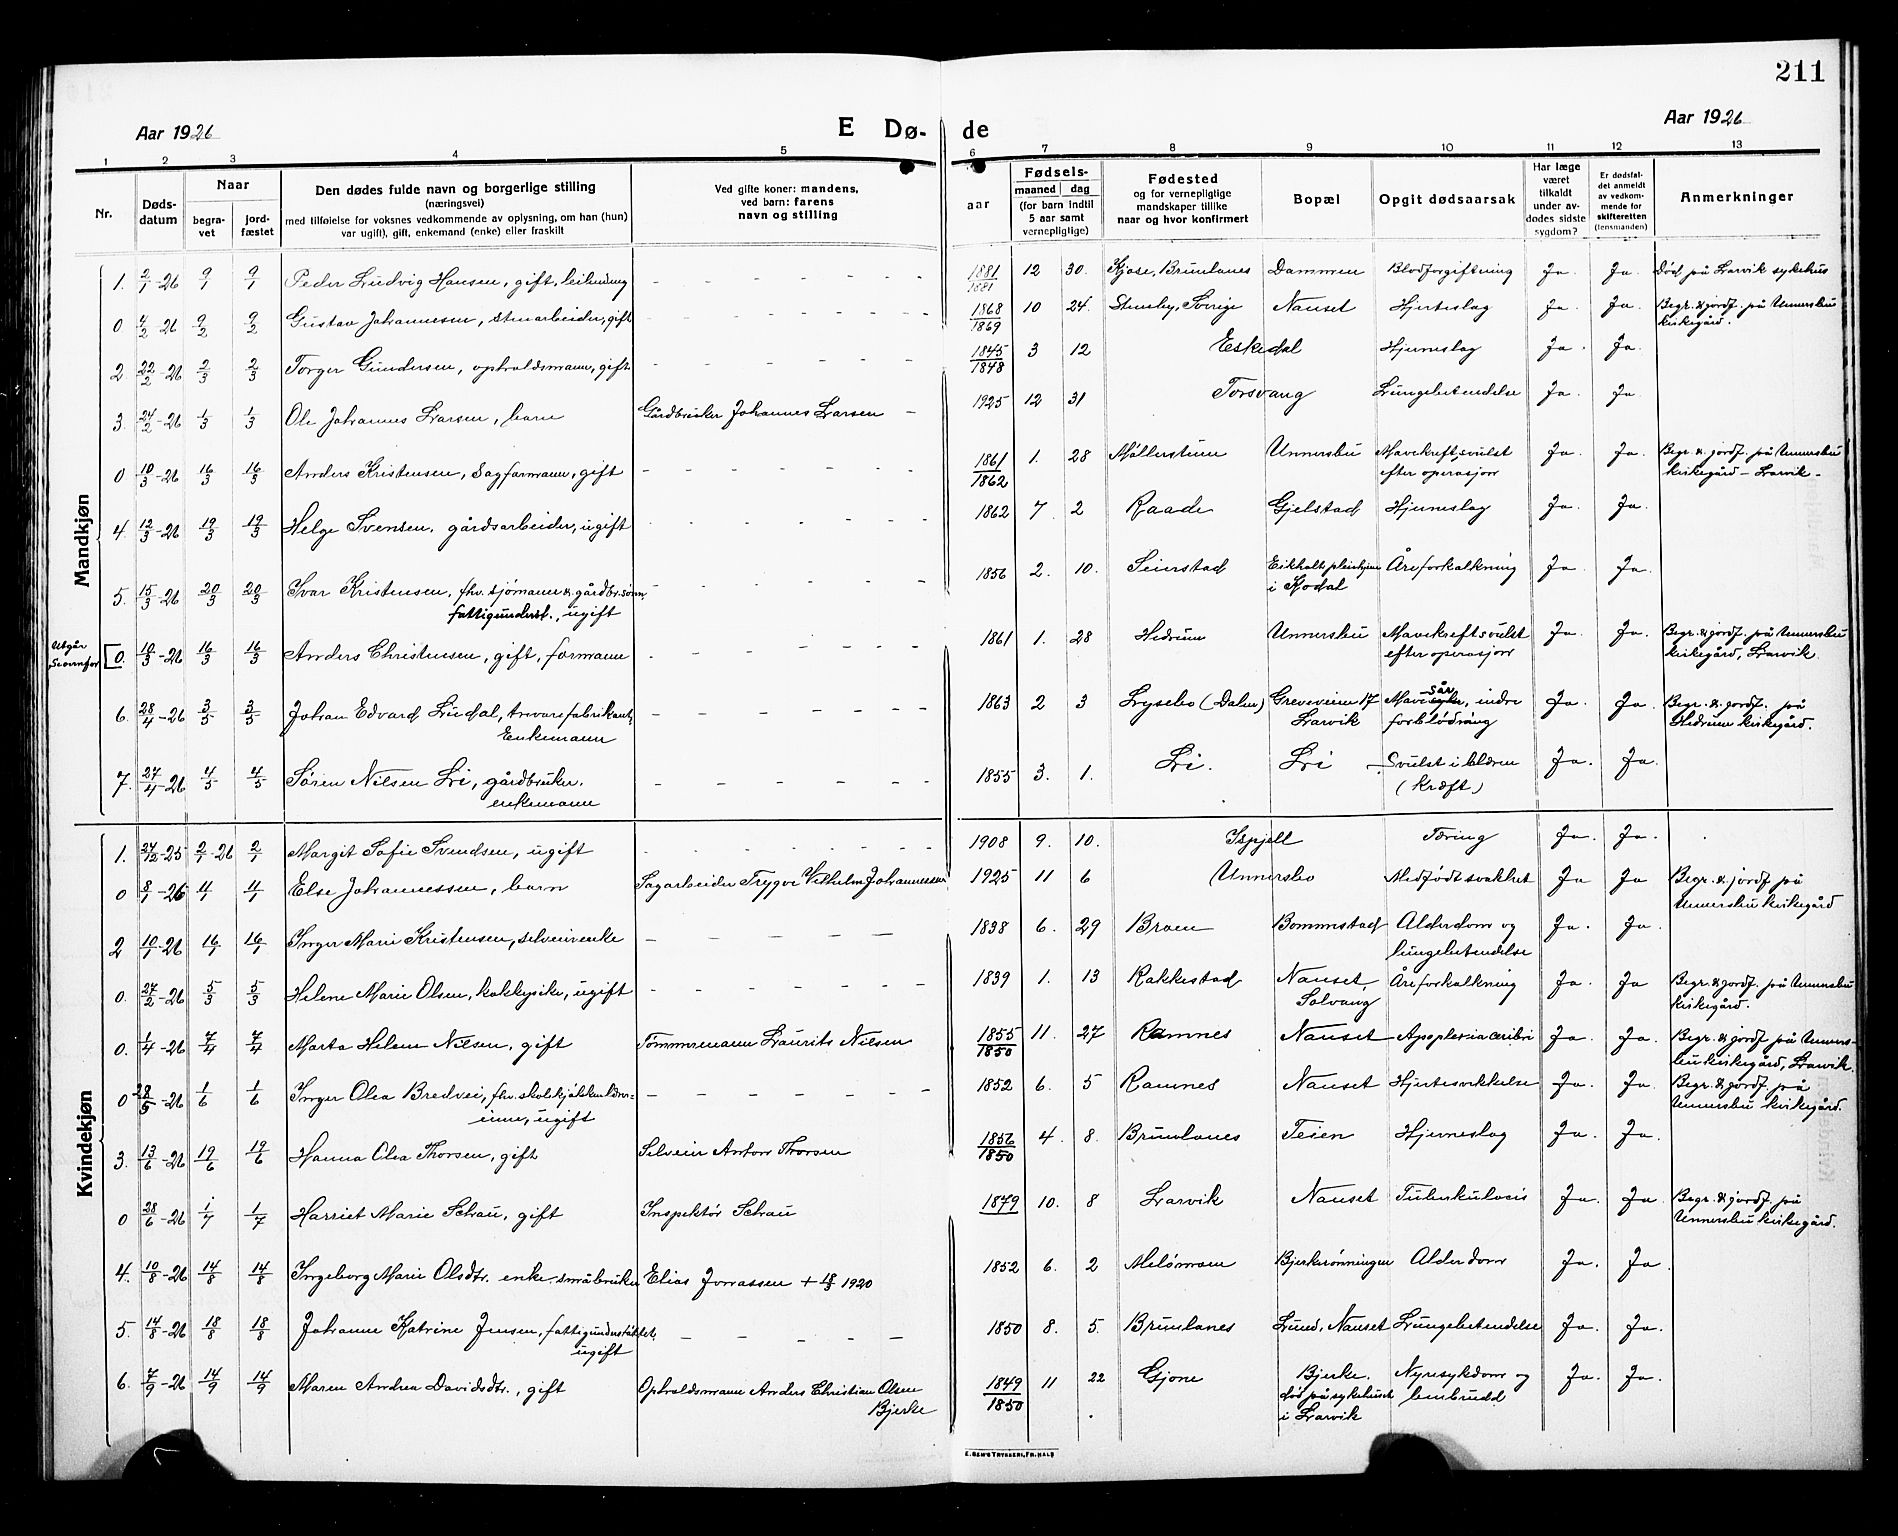 211
Aar 1926
E Dø-
de
Aar 1926
1 2 3 4 5 6 7 8 9 10 11 12 13
Nr.
Døds-
datum
Naar
begra-
vet
jord-
fæstet
Den dødes fulde navn og borgerlige stilling
(næringsvei)
med tilføielse for voksnes vedkommende av oplysning, om han (hun)
var ugift), gift, enkemand (enke) eller fraskilt
Ved gifte koner: mandens,
ved barn: farens
navn og stilling
Fødsels-
aar
maaned
dag
(for barn indtil
5 aar samt
vernepligtige)
Fødested
og for vernepligtige
mandskaper tillike
naar og hvor konfirmert
Bopæl
Opgit dødsaarsak
Har læge
været
tilkaldt
under av-
dødes sidste
sygdom?
Er dødsfal-
det anmeldt
av vedkom-
mende for
skifteretten
(lensmanden)
Anmerkninger
Mandkjøn
1. 2/1-26 9/1 9/1 Peder Ludvig Hansen, gift, leilending - - - - - - 1881/1881 12 30. Kjose, Brunlanes Dammen Blodforgiftning Ja. Ja. Død på Larvik sykehus
0 4/2-26 9/2 9/2 Gustav Johannesen, stenarbeider, gift - - - - - - 1868/1869 10 24. Stenby, Sverige Nanset Hjerteslag Ja. Ja. Begr. & jordf. på Unnersbu
kirkegård.
2 22/2-26 2/3 2/3 Torger Gundersen, opholdsmann, gift - - - - - - 1845/1848 3 12 Eskedal Hjerneslag Ja. Ja.
3. 24/2-26 1/3 1/3 Ole Johannes Larsen, barn Gårdbruker Johannes Larsen - 1925 12 31 Torsvang Lungebetendelse Ja. Ja.
0 10/3-26 16/3 16/3 Anders Kristensen, Sagformann, gift - - - - - - 1861/1862 1. 28 Møllerstuen Unnersbu Mavekreftsvulst
efter operasjon Ja. Ja. Begr. & jordf. på Unnersbu
kirkegård - Larvik -
4. 12/3-26 19/3 19/3 Helge Svensen, gårdsarbeider, ugift - - - - - - 1862 7 2 Raade Gjelstad Hjerneslag Ja. Ja.
5. 15/3-26 20/3 20/3 Ivar Kristensen, fhv. sjømann & gårdbr.sønn,
fattigunderst., ugift - - - - - - 1856 2. 10. Seierstad Eikholt pleiehjem
i Kodal Åreforkalkning Ja. Ja.
Utgår
Se ovenfor
0. 10/3-26 16/3 16/3 Anders Christensen, gift, formann - - - - - - 1861 1. 28 Hedrum Unnersbu Mavekreftsvulst
efter operasjon Ja. Ja. Begr. & jordf. på Unnersbu
kirkegård, Larvik.
6. 28/4-26 3/5 3/5 Johan Edvard Lindal, trevarefabrikant,
Enkemann - - - - - - 1863 2 3 Lysebo (Dalen) Greveveien 17
Larvik Mavesår, indre
forblødning Ja. Ja. Begr. & jordf. på
Hedrum kirkegård.
7. 27/4-26 4/5 4/5 Søren Nilsen Lie, gårdbruker,
enkemann - - - - - - 1855 3. 1. Lie. Lie Svulst i blæren
(kræft) Ja. Ja.
Kvindekjøn
1. 27/12-25 2/1-26 2/1 Margit Sofie Svendsen, ugift - - - - - - 1908 9. 10. Ispjell Tæring Ja. Ja.
0 8/1-26 4/1 4/1 Else Johannessen, barn Sagarbeider Trygve Vilhelm Johannessen 1925 11 6 Unnersbo Medfødt svakhet Ja Ja Begr. & jordf på
Unnersbu kirkegård
2 10/1-26 16/1 16/1 Inger Marie Kristensen, selveierenke - - - - - 1838 6. 29 Broen Bommestad Alderdom og
lungebetendelse Ja. Ja.
0. 27/2-26 5/3 5/3 Helene Marie Olsen, kokkepike, ugift - - - - - - 1839 1. 13 Rakkestad Nanset,
Solvang Åreforkalkning Ja Ja Begr. & jordf. på Unnersbu
kirkegård.
0. 1/4-26 7/4 7/4 Marta Helene Nilsen, gift Tømmermann Laurits Nilsen 1855/1850 11. 27 Ramnes Nanset Apoplexia cerebri Ja. Ja. Begr. & jordf på Unners-
bu kirkegård, Larvik.
0 28/5-26 1/6 1/6 Inger Olea Bredvei, fhv. skolekjøkkenlærer-
inne, ugift - - - - - - 1852 6. 5 Ramnes Nanset Hjertesvekkelse Ja. Ja. Begr. & jordf. på
Unnersbu kirkegård.
3. 13/6-26 19/6 19/6 Hanna Olea Thorsen, gift Selveier Anton Thorsen 1856/1850 4. 8. Brunlanes Teien Hjerneslag Ja. Ja.
0 28/6-26 1/7 1/7 Harriet Marie Schau, gift Inspektør Schau 1879 10. 8 Larvik Nanset Tuberkulosis Ja. Ja. Begr. & jordf. på
Unnersbu kirkegård.
4. 10/8-26 14/8 14/8 Ingeborg Marie Olsdtr. enke småbruker Elias Jonassen + 18/3 1920 1852 6. 2 Meløman Bjerkerønningen Alderdom Ja. Ja.
5. 14/8-26 18/8 18/8 Johanne Katrine Jensen, fattigunderstøttet,
ugift - - - - - 1850 8. 5. Brunlanes Lund, Nanset Lungebetendelse Ja. Ja.
6. 7/9-26 14/9 14/9 Maren Andrea Davidsdtr., gift Opholdsmann Anders Christian Olsen
Bjerke 1849/1850 11 22 Gjone Bjerke.
død på sykehuset
i Larvik Nyresykdom og
benbrudd Ja. Ja.
E. SEM'S TRYKKERI, FR.HALD